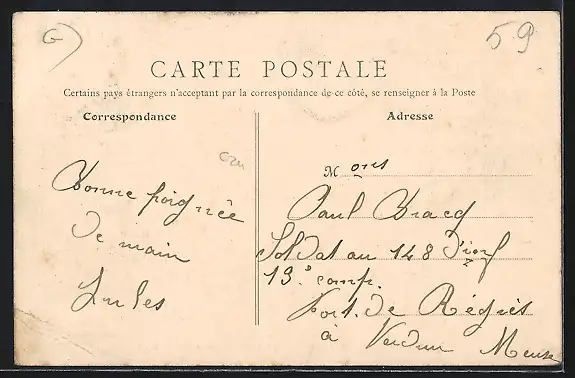 G
59
CARTE POSTALE
Certains pays étrangers n'acceptant pas la correspondance de ce côté, se renseigner à la Poste
Correspondance
Adresse
Bonne poignée
de main
Jules
Mons
Paul Bracq
Soldat au 148 d'inf
13e comp.
Fort de
à Verdun Meuse